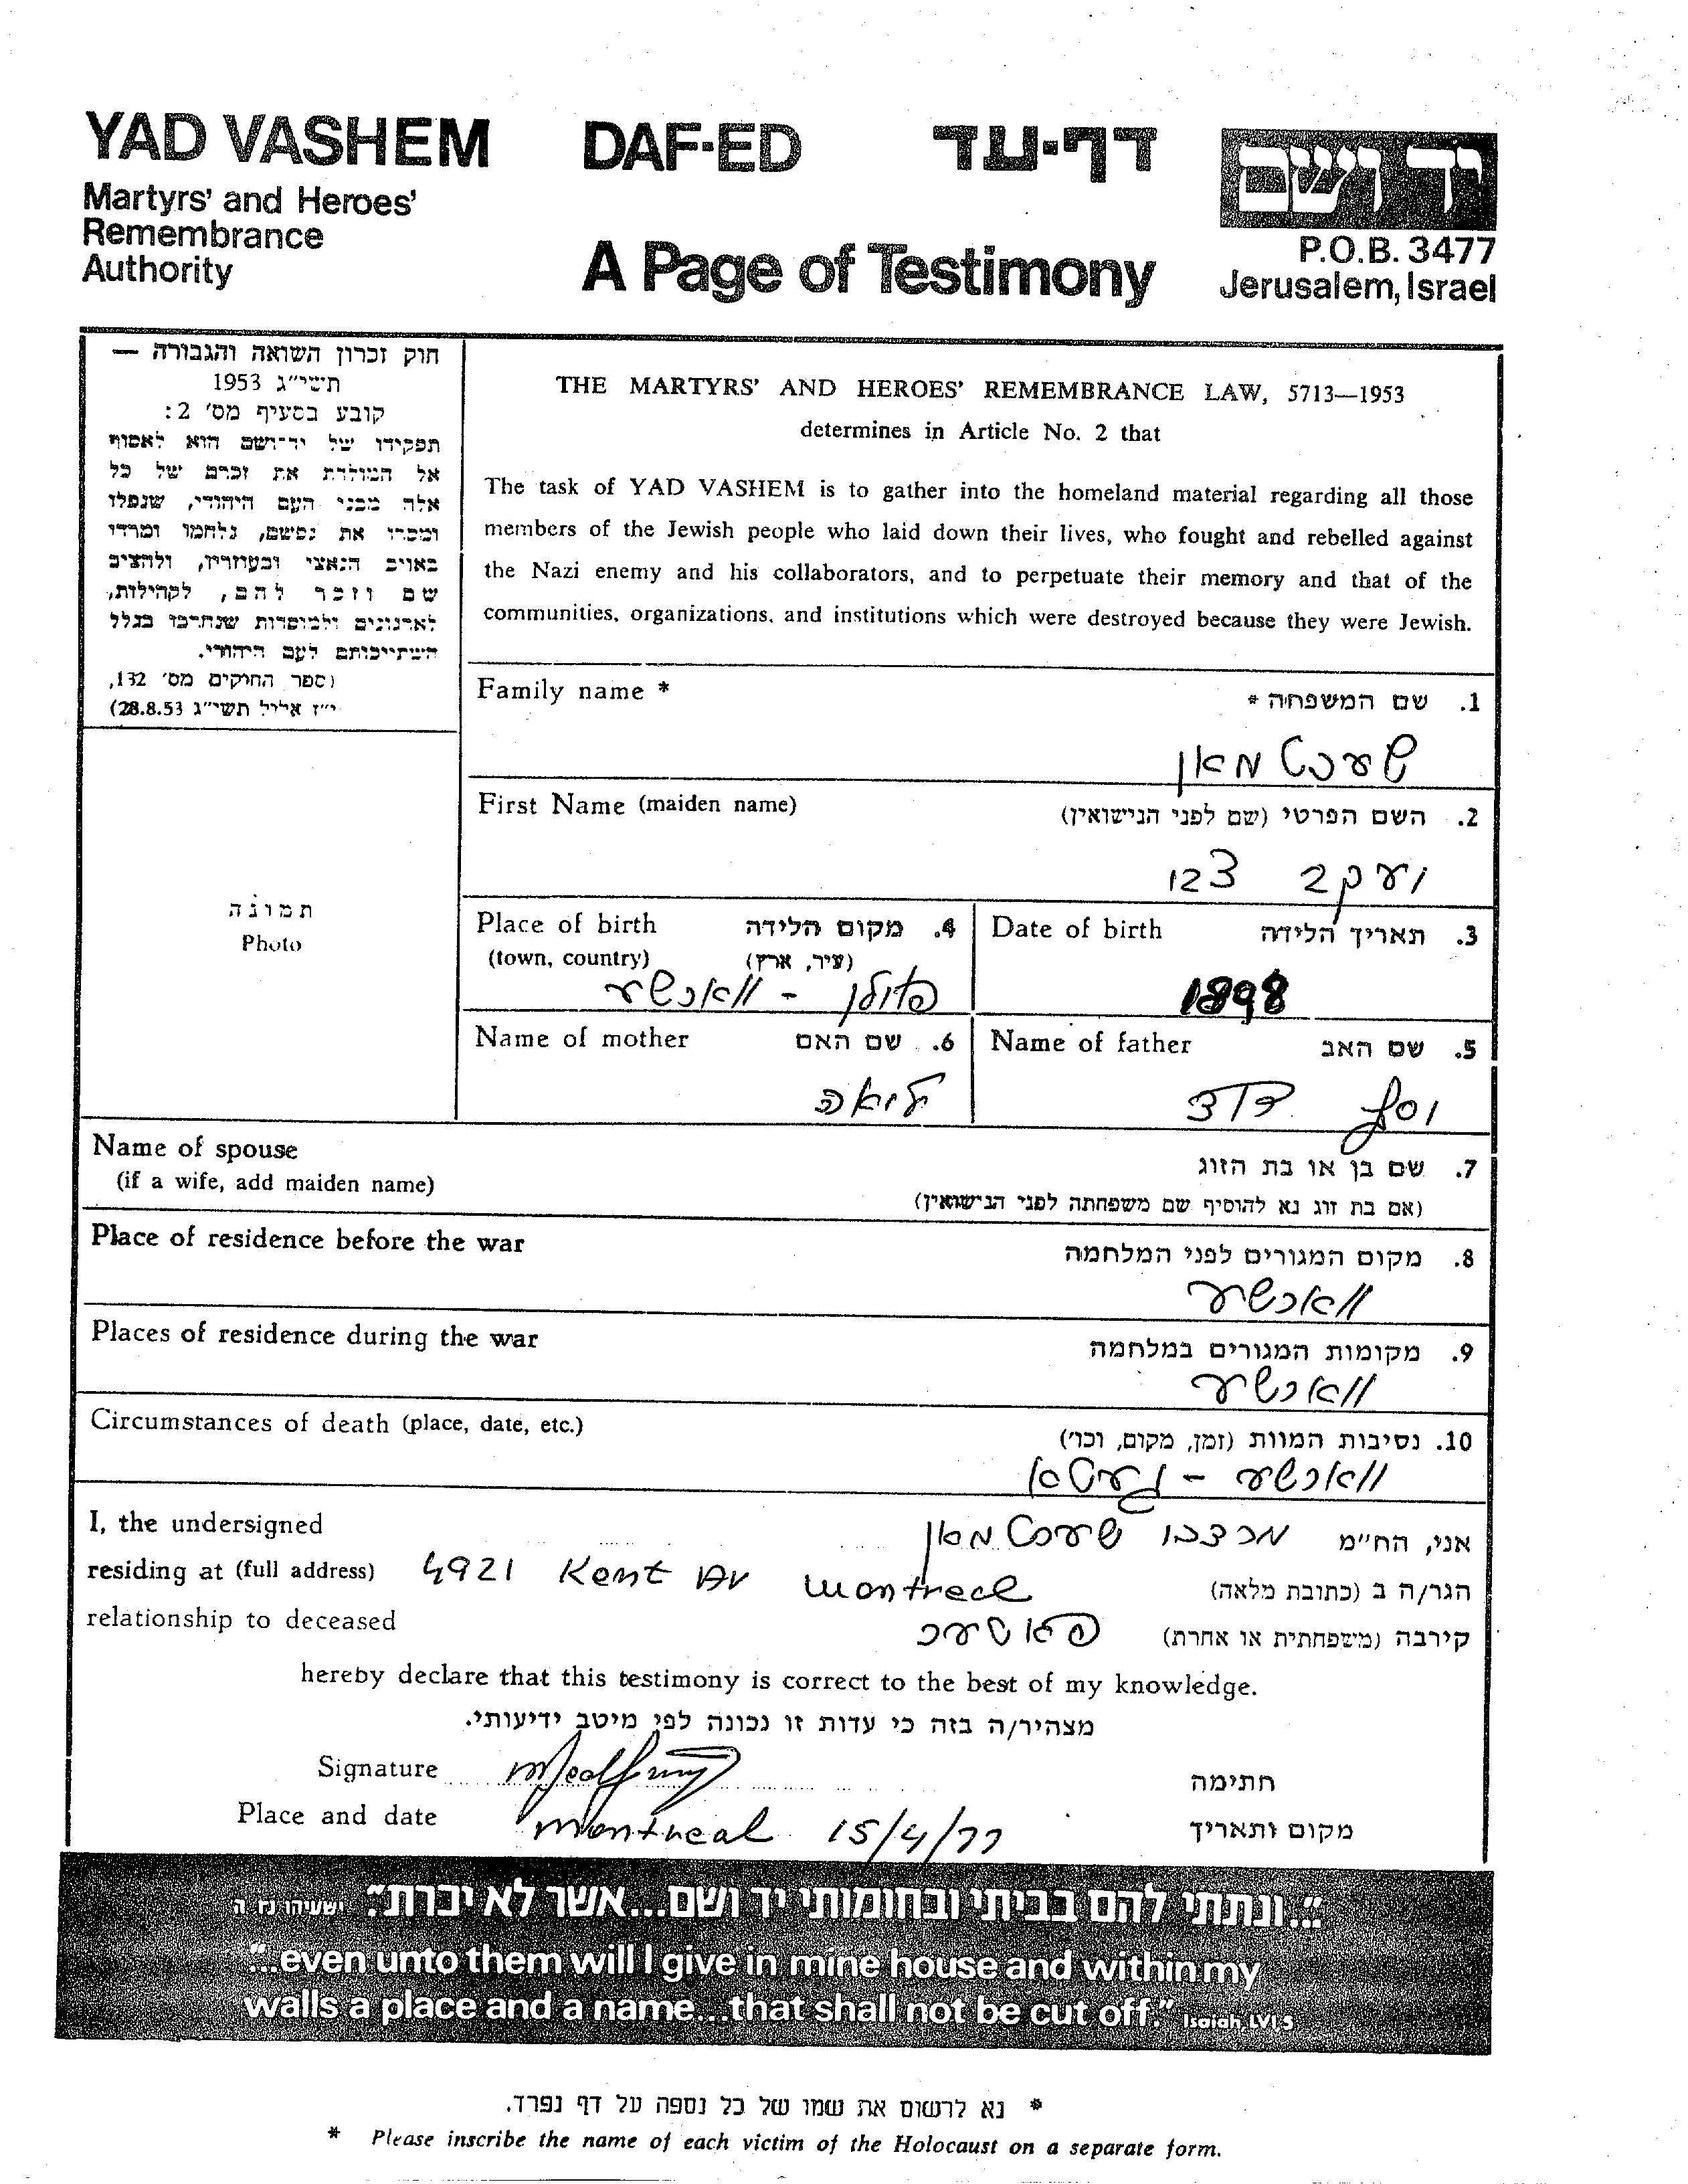 YAD VASHEM DAF-ED דף-עד יד ושם
Martyrs' and Heroes'
Remembrance
Authority
A Page of Testimony
P.O.B. 3477
Jerusalem, Israel
חוק זכרון השואה והגבורה —
תשי"ג 1953
קובע בסעיף מס' 2:
תפקידו של יד-ושם הוא לאסוף
אל המולדת את זכרם של כל
אלה מבני העם היהודי, שנפלו
ומסרו את נפשם, נלחמו ומרדו
באויב הנאצי ובעוזריו, ולהציב
שם וזכר להם, לקהילות,
לארגונים ולמוסדות שנחרבו בגלל
השתייכותם לעם היהודי.
(ספר החוקים מס' 132,
י"ז אלול תשי"ג 28.8.53)
THE MARTYRS' AND HEROES' REMEMBRANCE LAW, 5713—1953
determines in Article No. 2 that
The task of YAD VASHEM is to gather into the homeland material regarding all those
members of the Jewish people who laid down their lives, who fought and rebelled against
the Nazi enemy and his collaborators, and to perpetuate their memory and that of the
communities, organizations, and institutions which were destroyed because they were Jewish.
תמונה
Photo
Family name * 1. שם המשפחה *
שעכטמאן
First Name (maiden name) 2. השם הפרטי (שם לפני הנישואין)
יעקב
Date of birth 3. תאריך הלידה
1898
Place of birth 4. מקום הלידה
(town, country) (עיר, ארץ)
פוילן - ווארשע
Name of father 5. שם האב
יוסף דוד
Name of mother 6. שם האם
Name of spouse 7. שם בן או בת הזוג
(if a wife, add maiden name) (אם בת זוג נא להוסיף שם משפחתה לפני הנישואין)
Place of residence before the war 8. מקום המגורים לפני המלחמה
ווארשע
Places of residence during the war 9. מקומות המגורים במלחמה
ווארשע
Circumstances of death (place, date, etc.) 10. נסיבות המוות (זמן, מקום, וכו')
ווארשע - געטא
I, the undersigned אני, הח"מ שעכטמאן
residing at (full address) 4921 Kent Av Montreal הגר/ה ב (כתובת מלאה)
relationship to deceased קירבה (משפחתית או אחרת) פאטער
hereby declare that this testimony is correct to the best of my knowledge.
מצהיר/ה בזה כי עדות זו נכונה לפי מיטב ידיעותי.
Signature חתימה
Place and date Montreal 15/4/77 מקום ותאריך
"...ונתתי להם בביתי ובחומותי יד ושם...אשר לא יכרת" ישעיהו נו ה
"...even unto them will I give in mine house and within my
walls a place and a name...that shall not be cut off." Isaiah, LVI,5
* נא לרשום את שמו של כל נספה על דף נפרד.
* Please inscribe the name of each victim of the Holocaust on a separate form.